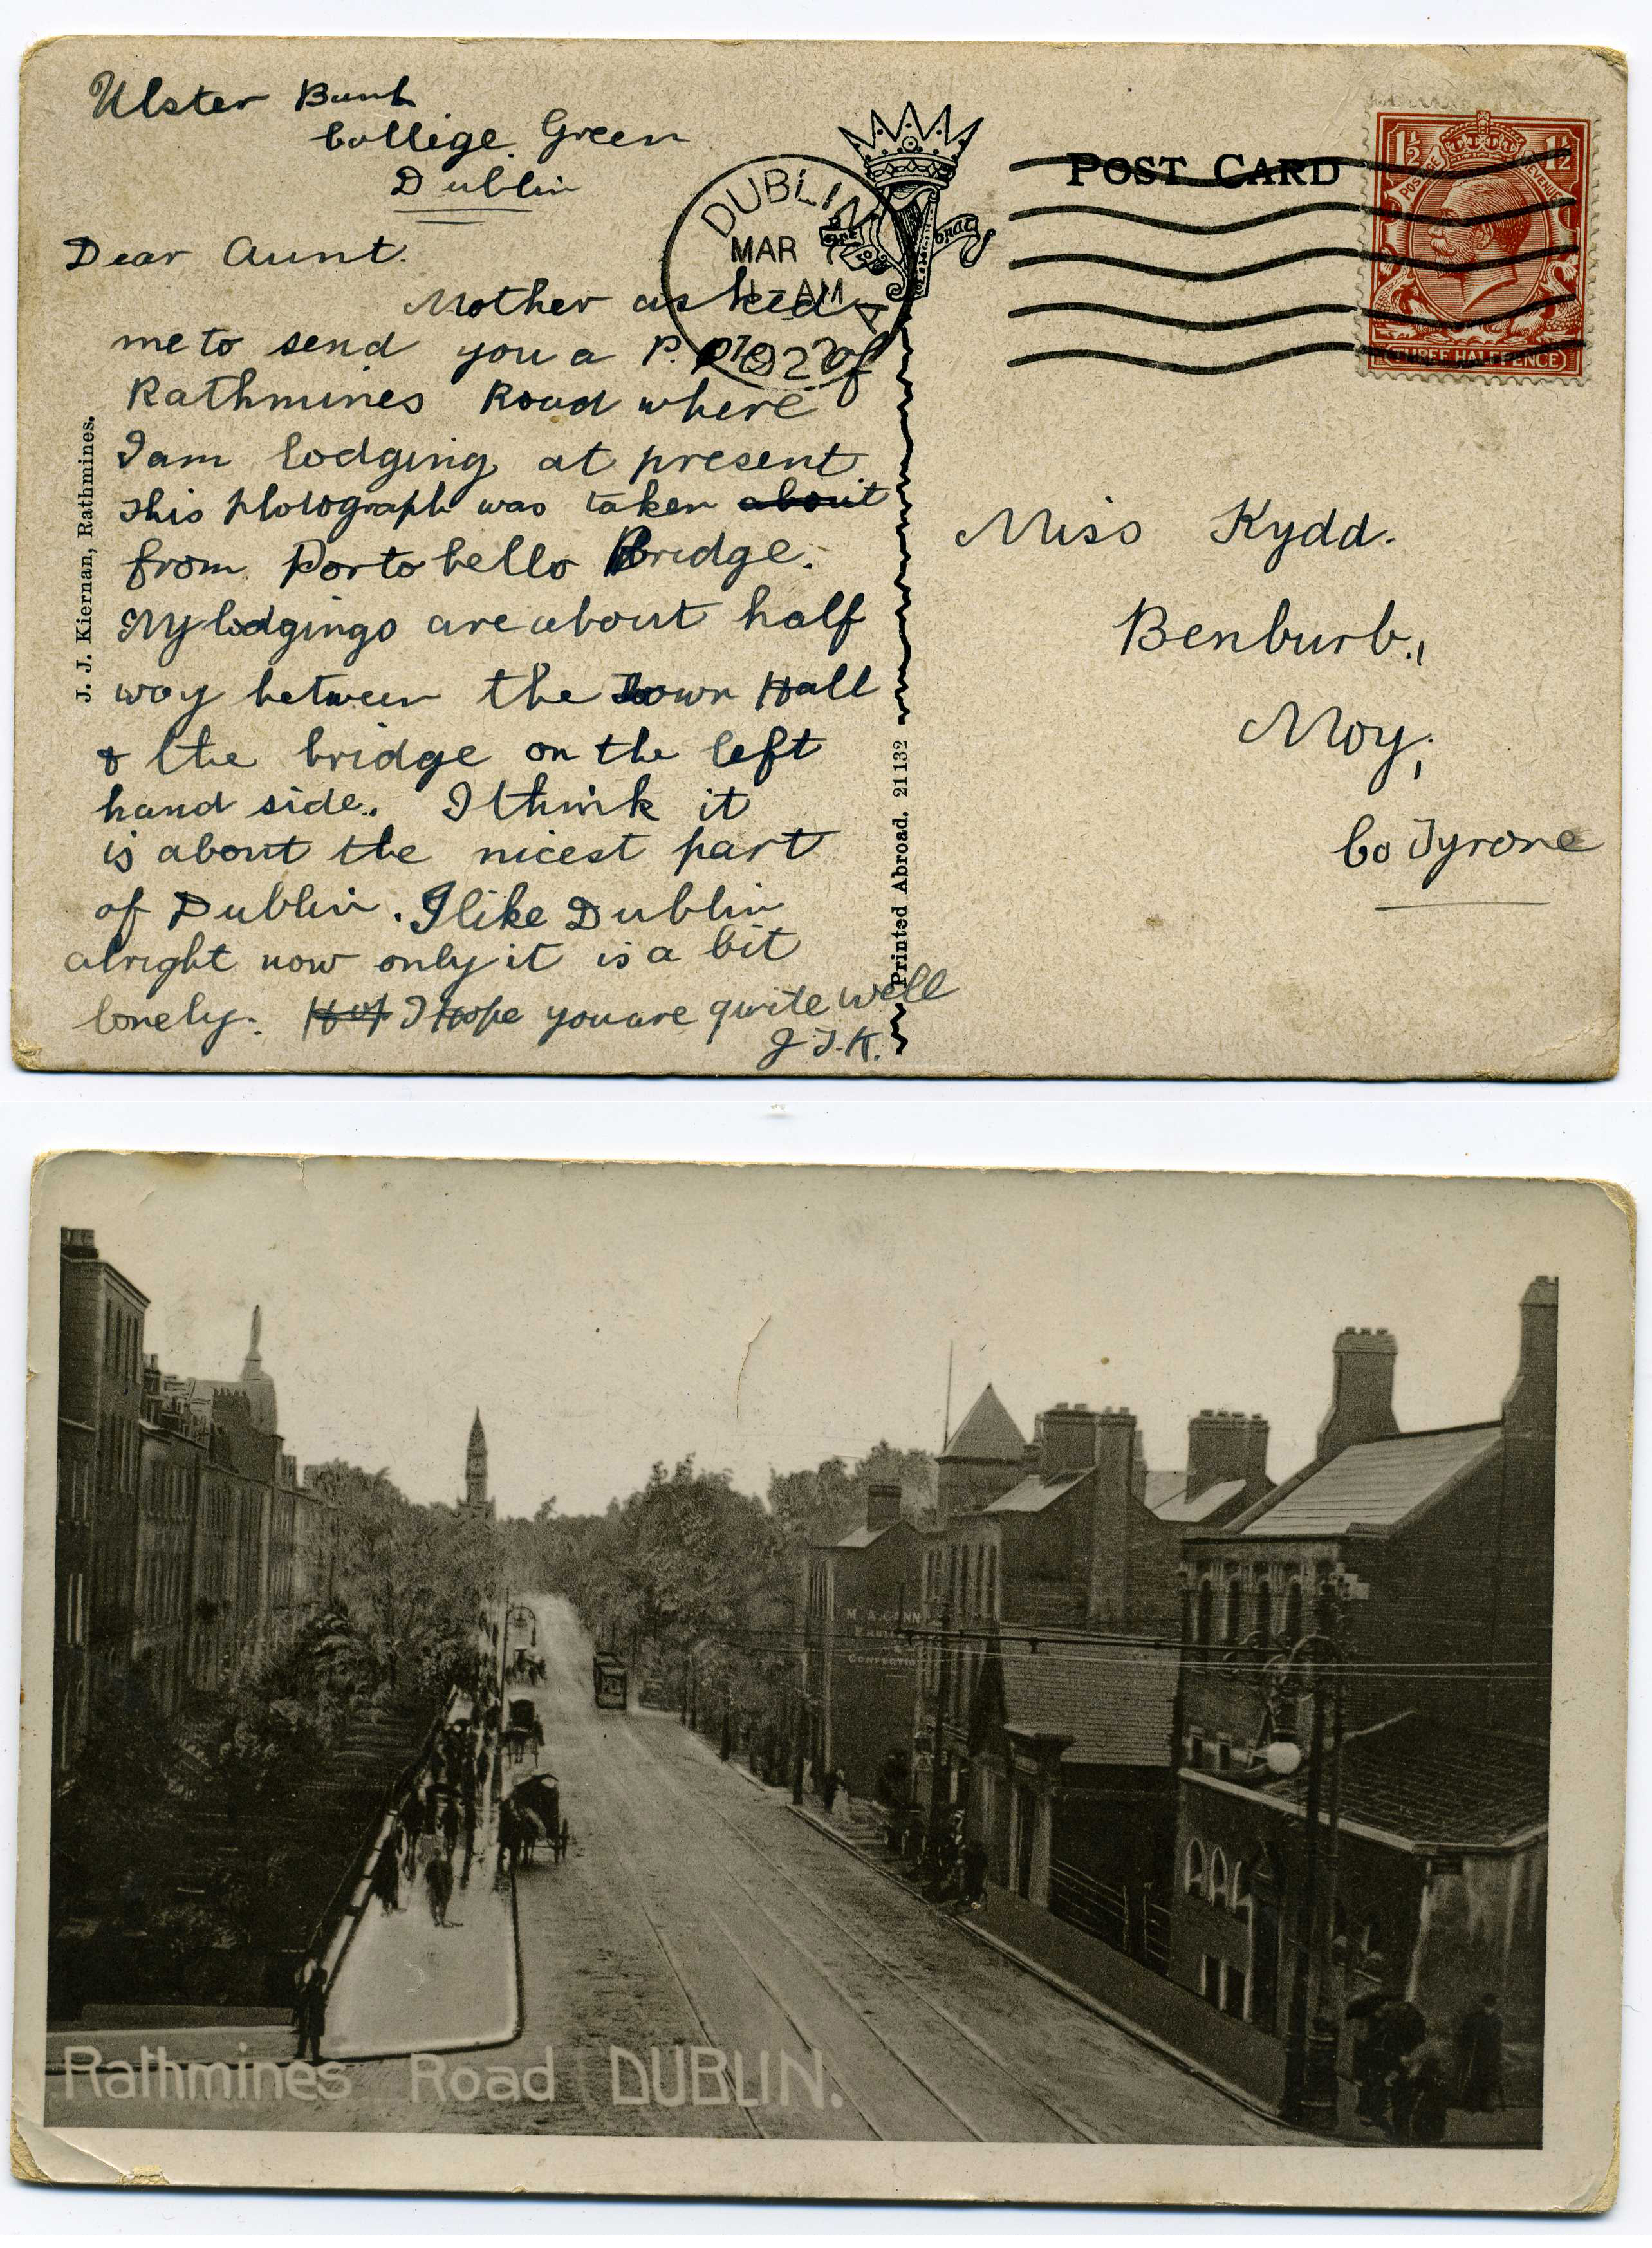 Ulster Bank
College Green
Dublin
Dear Aunt.
Mother asked
me to send you a P. of
Rathmines Road where
I am lodging at present
This photograph was taken about
from Portobello Bridge.
My lodgings are about half
way between the Town Hall
& the bridge on the left
hand side. I think it
is about the nicest part
of Dublin. I like Dublin
alright now only it is a bit
lonely. I hope you are quite well
J.T.K.
J. J. Kiernan, Rathmines.
Printed Abroad. 21132
DUBLIN
MAR
AM
POST CARD
1½ 1½
POSTAGE REVENUE
THREE HALFPENCE
Miss Kydd.
Benburb,
Moy,
Co Tyrone
M. A. CANN
CONFECTIO
Rathmines Road DUBLIN.